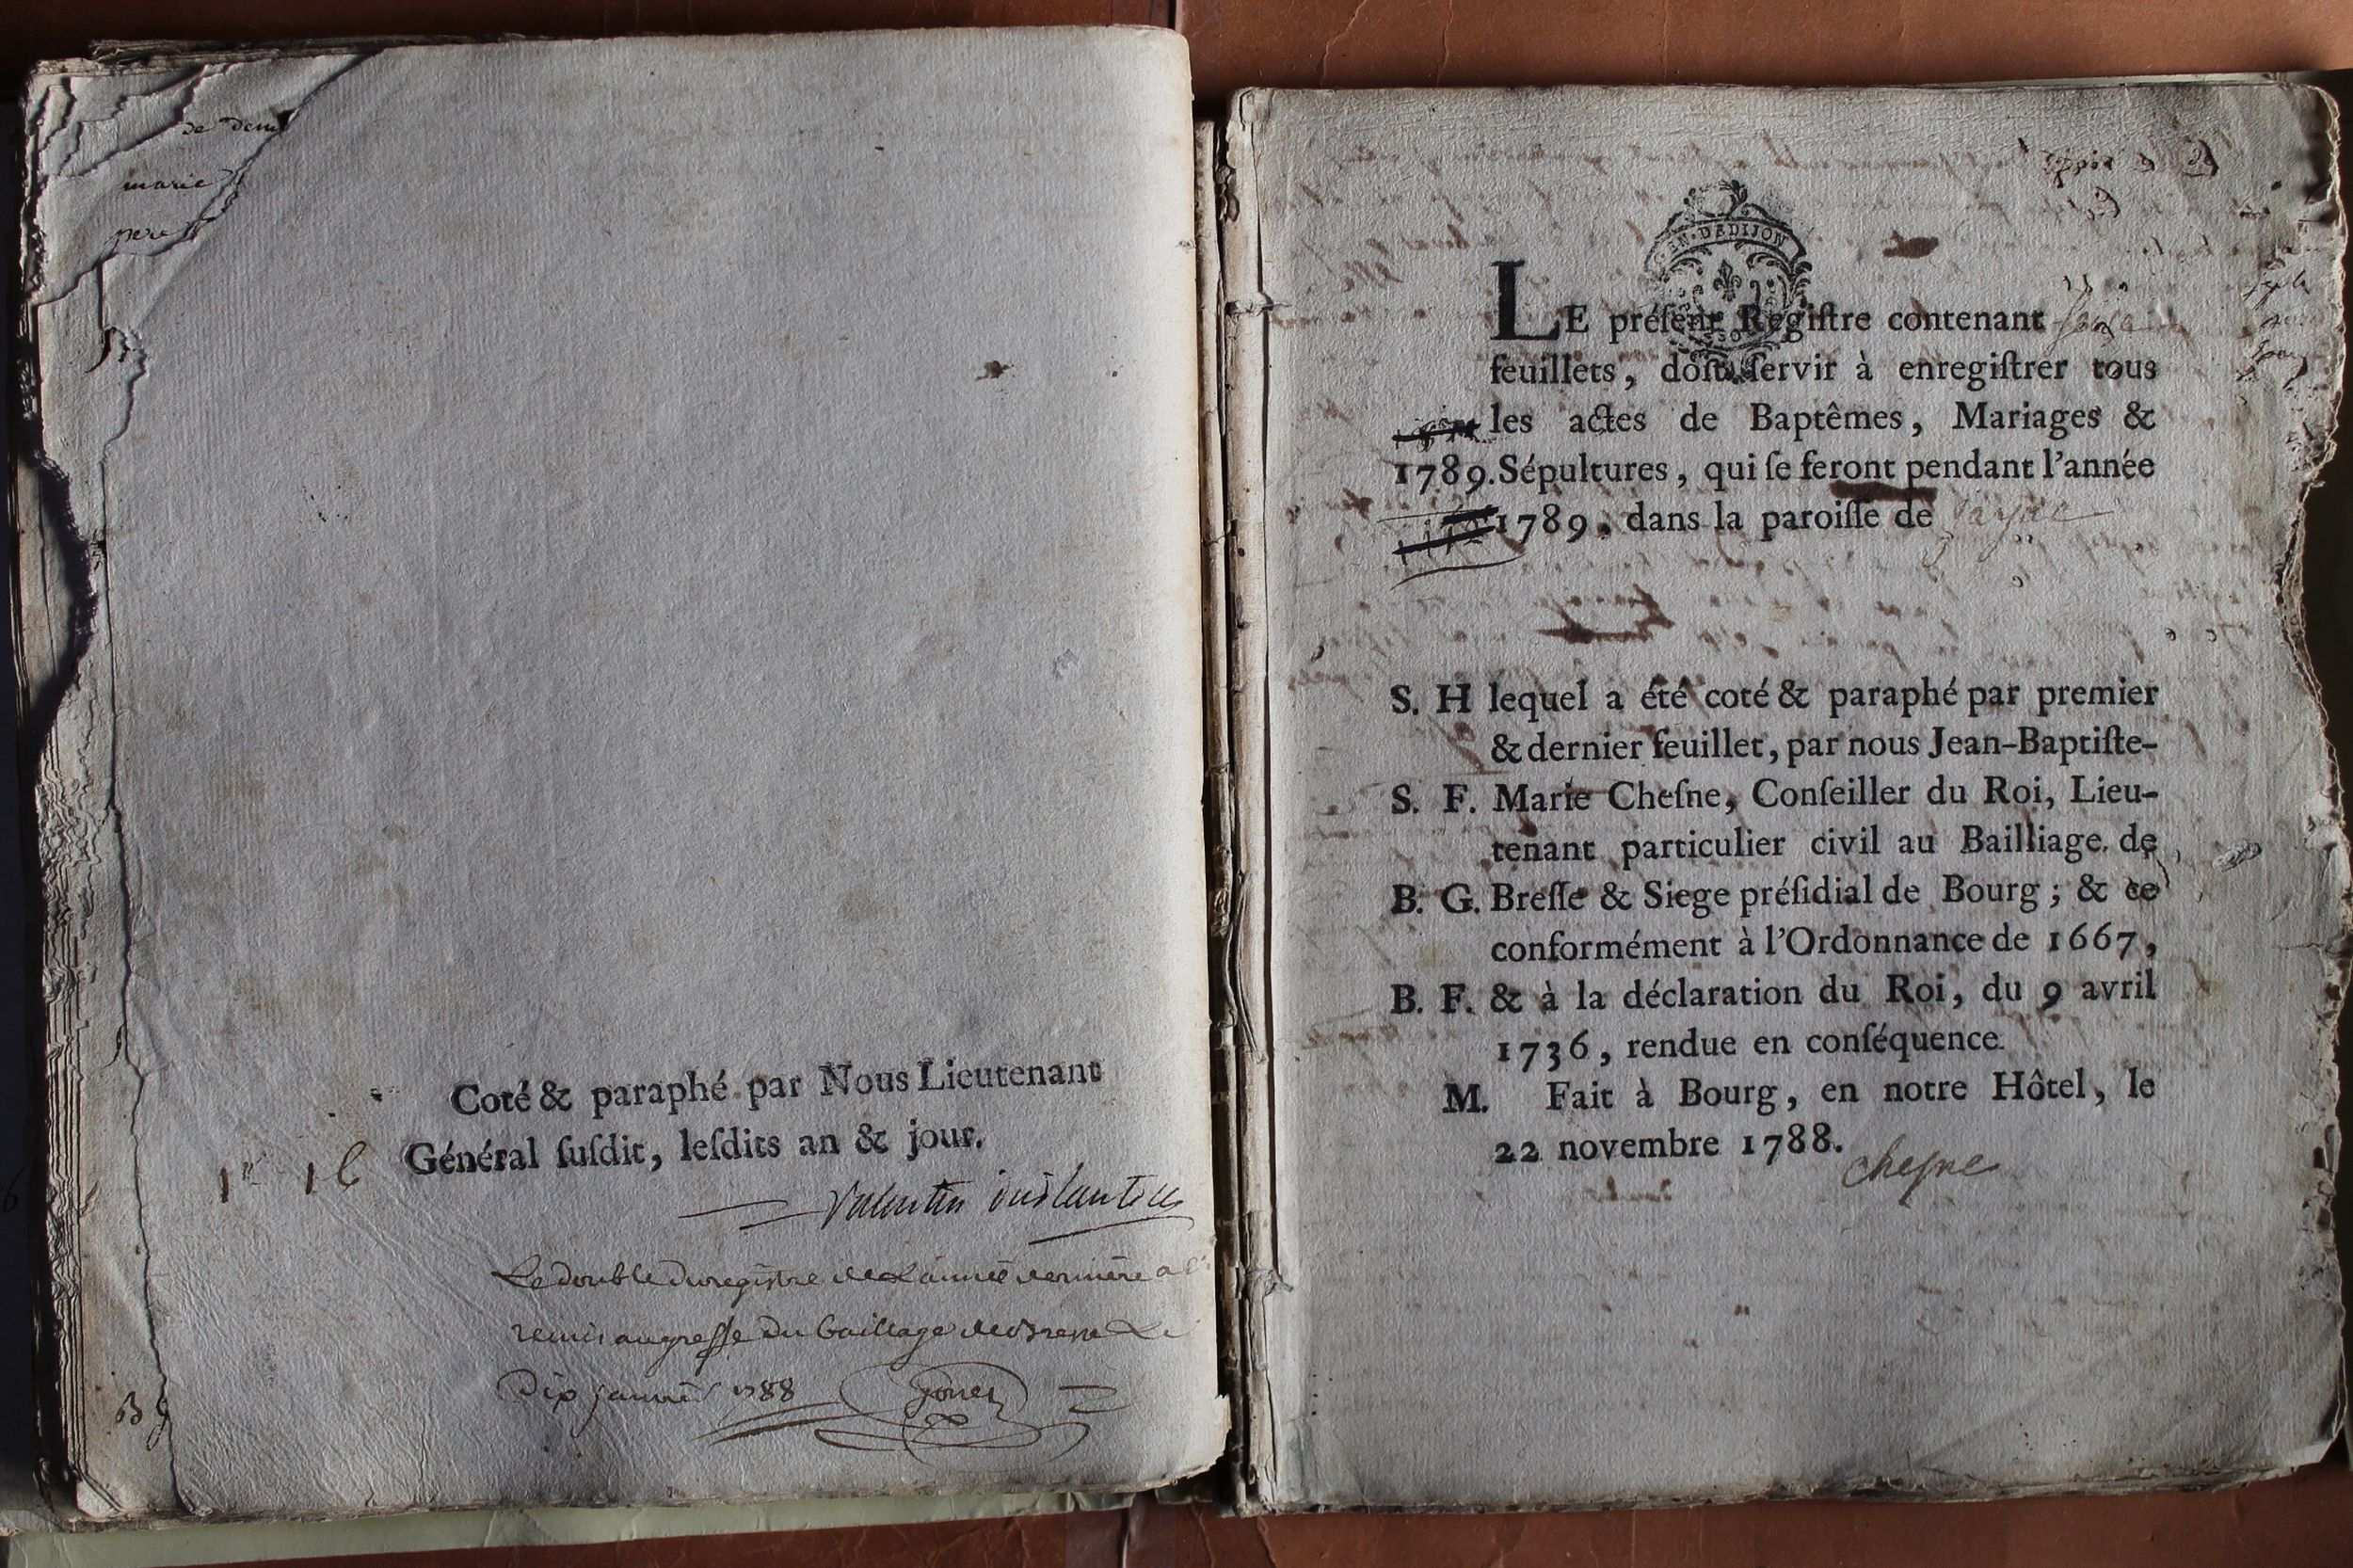 de dem
marie
Coté & paraphé par Nous Lieutenant
Général ſuſdit, leſdits an & jour.
Valentin
Le double du registre de L'année derniere a
remis au greffe du bailliage de Bresse Le
Dix janvier 1788
EN. DE DIJON
LE préſent Regiſtre contenant
feuillets, doit ſervir à enregiſtrer tous
les actes de Baptêmes, Mariages &
1789. Sépultures, qui ſe feront pendant l'année
1789, dans la paroiſſe de
S. H lequel a été coté & paraphé par premier
& dernier feuillet, par nous Jean-Baptiſte-
S. F. Marie Cheſne, Conſeiller du Roi, Lieu-
tenant particulier civil au Bailliage de
B. G. Breſſe & Siege préſidial de Bourg ; & ce
conformément à l'Ordonnance de 1667,
B. F. & à la déclaration du Roi, du 9 avril
1736, rendue en conſéquence.
M. Fait à Bourg, en notre Hôtel, le
22 novembre 1788.
Chesne